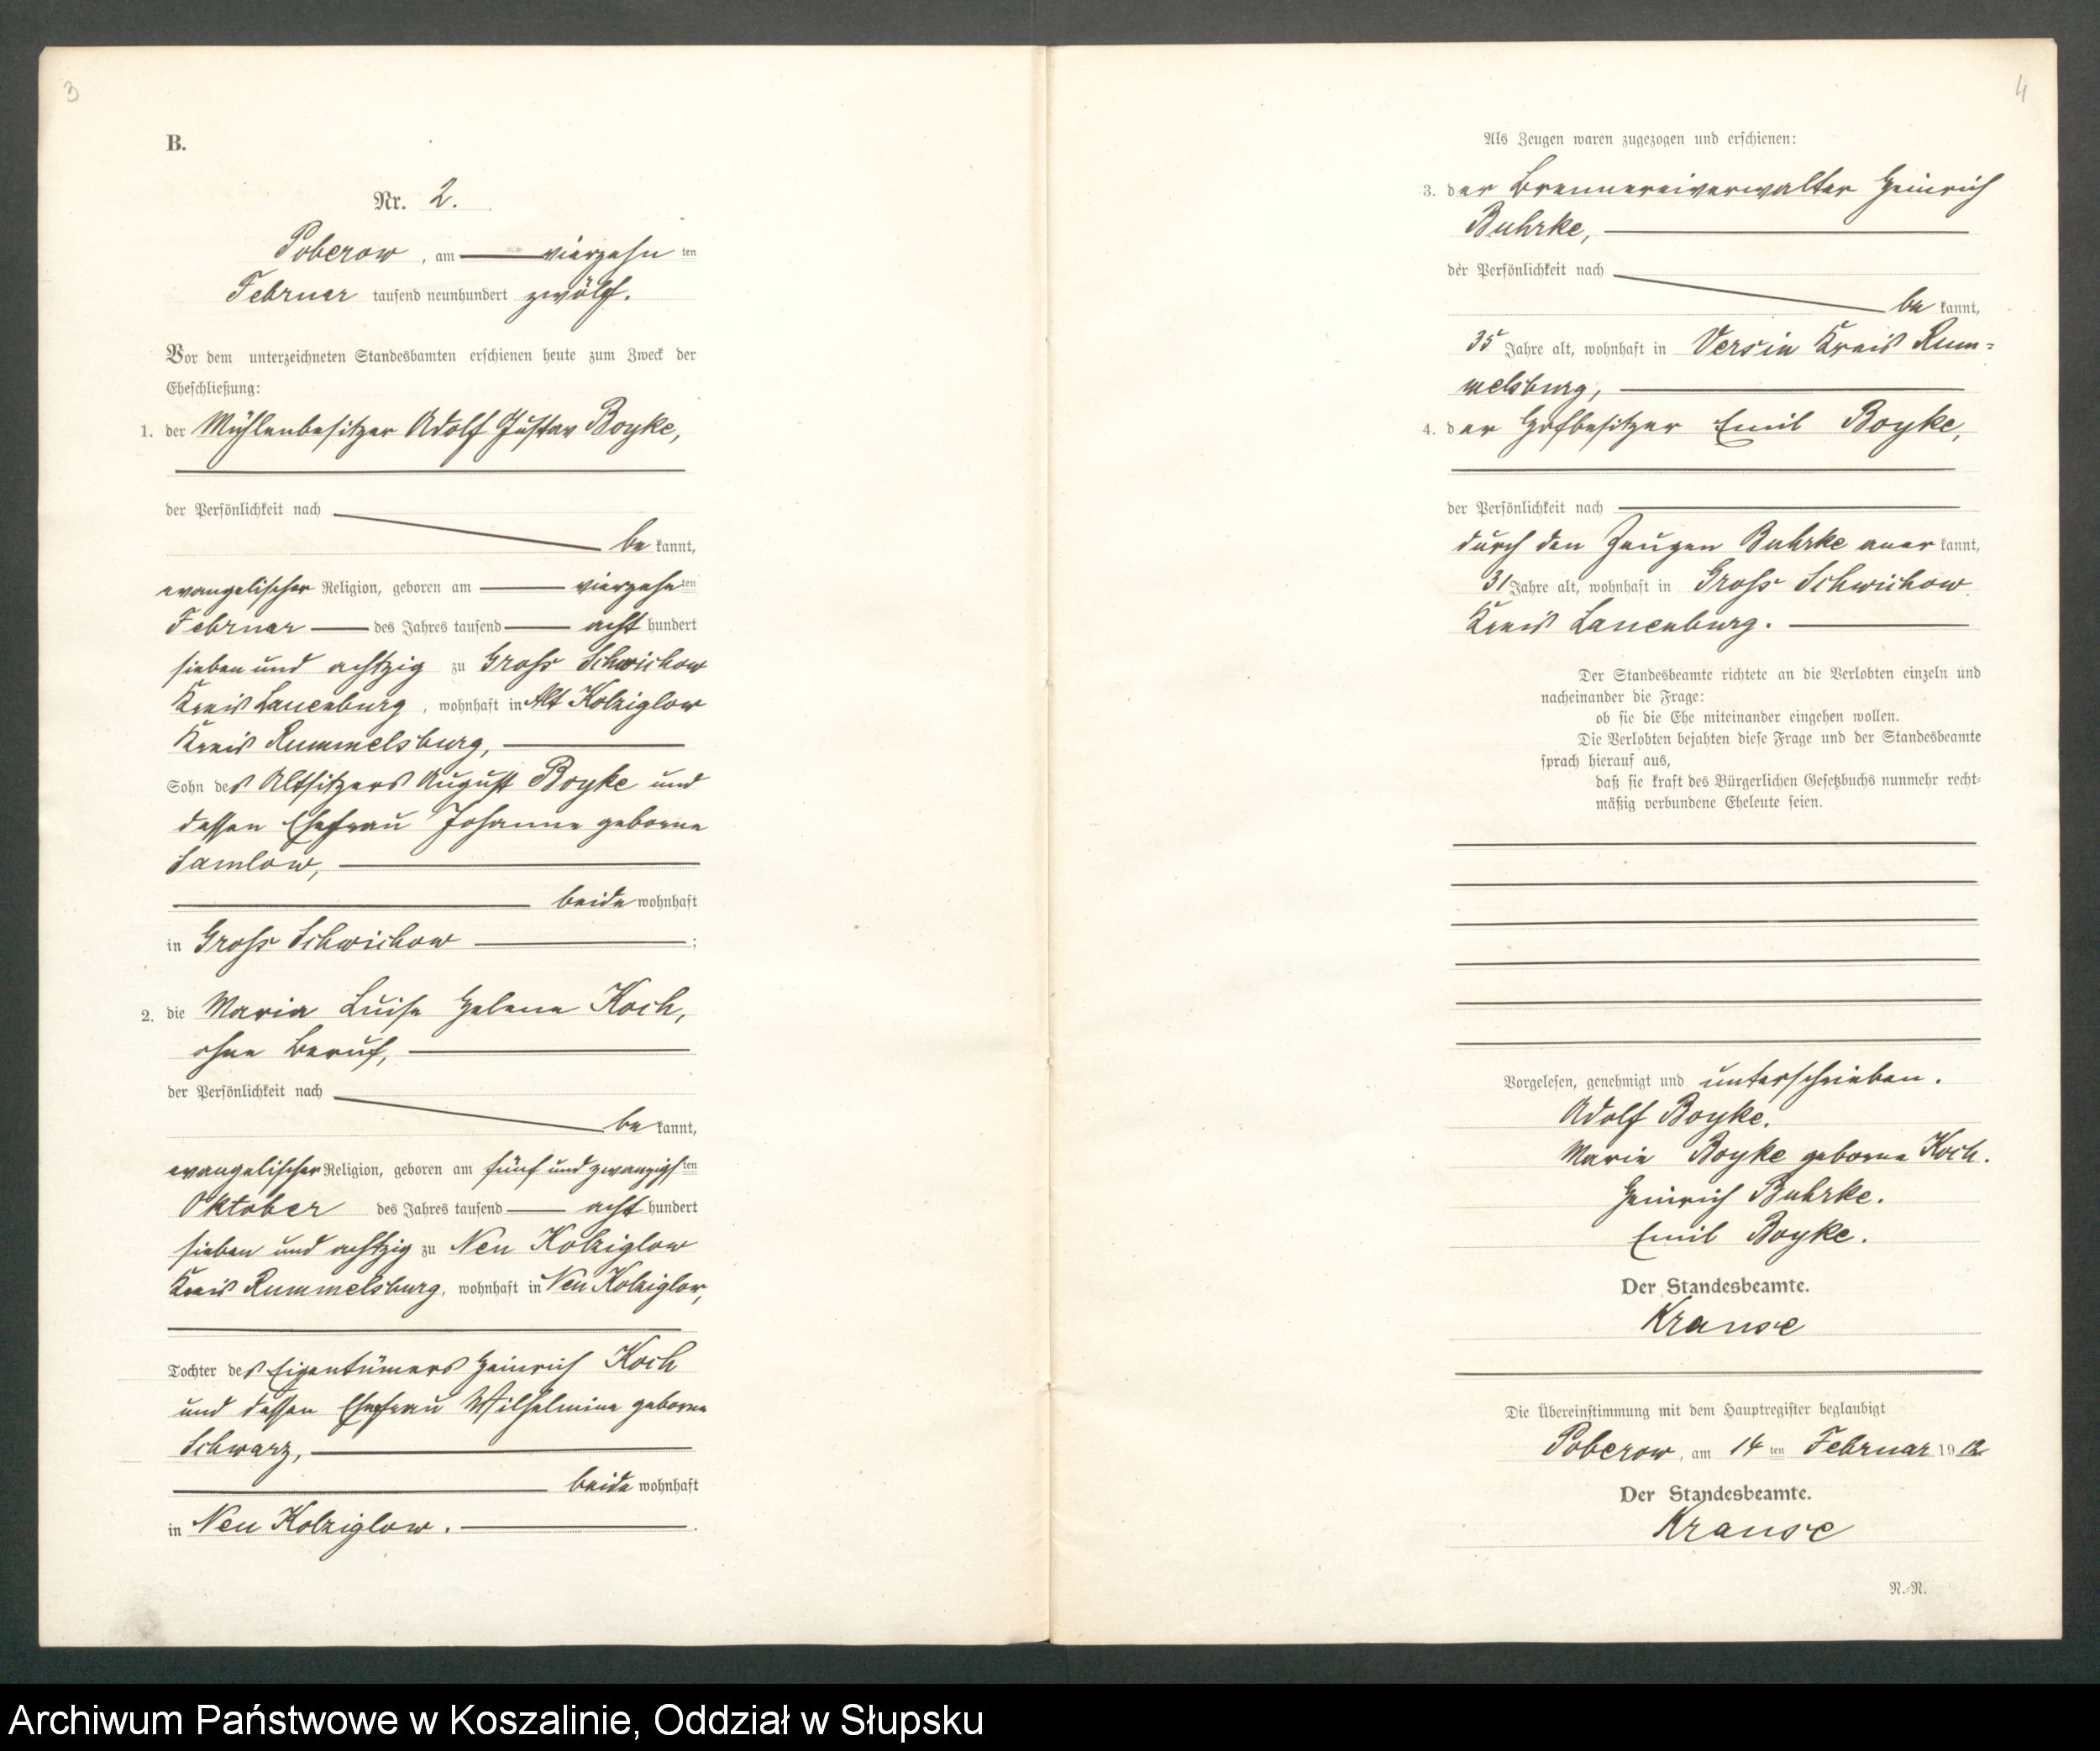 3
B.
Nr. 2.
Poberow, am vierzehn ten
Februar tausend neunhundert zwölf.
Vor dem unterzeichneten Standesbamten erschienen heute zum Zweck der
Eheschließung:
1. der Mühlenbesitzer Adolf Gustav Boyke,
der Persönlichkeit nach
be kannt,
evangelischer Religion, geboren am vierzehn ten
Februar des Jahres tausend acht hundert
sieben und achtzig zu Gross Schwichow
Kreis Lauenburg, wohnhaft in Alt Kolziglow
Kreis Rummelsburg,
Sohn des Altsitzers August Boyke und
dessen Ehefrau Johanne geborne
Samlow,
beide wohnhaft
in Gross Schwichow ;
2. die Maria Luise Helene Koch,
ohne Beruf,
der Persönlichkeit nach
be kannt,
evangelischer Religion, geboren am fünf und zwanzigs ten
Oktober des Jahres tausend acht hundert
sieben und achtzig zu Neu Kolziglow
Kreis Rummelsburg, wohnhaft in Neu Kolziglow,
Tochter des Eigentümers Heinrich Koch
und dessen Ehefrau Wilhelmine geborne
Schwarz,
beide wohnhaft
in Neu Kolziglow.
4
Als Zeugen waren zugezogen und erschienen:
3. der Brennereiverwalter Heinrich
Buhrke,
der Persönlichkeit nach
be kannt,
35 Jahre alt, wohnhaft in Versin Kreis Rum=
melsburg,
4. der Hofbesitzer Emil Boyke,
der Persönlichkeit nach
durch den Zeugen Buhrke aner kannt,
31 Jahre alt, wohnhaft in Gross Schwichow
Kreis Lauenburg.
Der Standesbeamte richtete an die Verlobten einzeln und
nacheinander die Frage:
ob sie die Ehe miteinander eingehen wollen.
Die Verlobten bejahten diese Frage und der Standesbeamte
sprach hierauf aus,
daß sie kraft des Bürgerlichen Gesetzbuchs nunmehr recht-
mäßig verbundene Eheleute seien.
Vorgelesen, genehmigt und unterschrieben.
Adolf Boyke.
Marie Boyke geborne Koch.
Heinrich Buhrke.
Emil Boyke.
Der Standesbeamte.
Krause
Die Übereinstimmung mit dem Hauptregister beglaubigt
Poberow, am 14 ten Februar 19 12
Der Standesbeamte.
Krause
N.-N.
Archiwum Państwowe w Koszalinie, Oddział w Słupsku